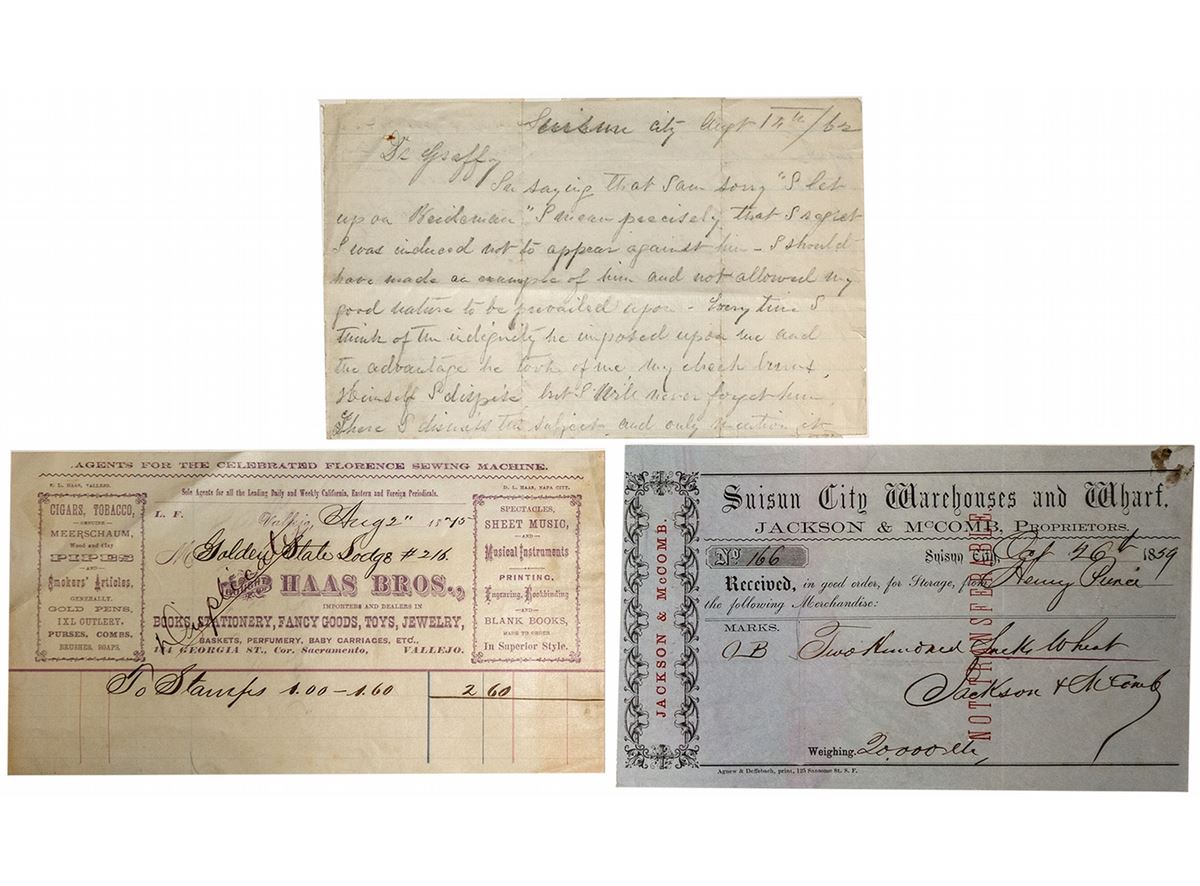 Suisun city Augt 14th/62
Dr Graffy
In saying that I am sorry "I let
up on Weideman" I mean precisely that I regret
I was induced not to appear against him - I should
have made an example of him and not allowed my
good nature to be prevailed upon - Every time I
think of the indignity he imposed upon me and
the advantage he took of me my cheek burns,
Himself I dispise but I will never forget him.
Here I dismiss the subject and only mention it
AGENTS FOR THE CELEBRATED FLORENCE SEWING MACHINE.
HAAS, VALLEJO.
D. L. HAAS, NAPA CITY.
Sole Agents for all the Leading Daily and Weekly California, Eastern and Foreign Periodicals.
CIGARS, TOBACCO,
GENUINE
MEERSCHAUM,
Wood and Clay
PIPES
AND
Smokers' Articles,
GENERALLY.
GOLD PENS,
IXL CUTLERY,
PURSES, COMBS,
BRUSHES, SOAPS.
L. F.
Vallejo, Aug 2" 1875
M Golden State Lodge # 216
Duplicate
Bought of HAAS BROS.,
IMPORTERS AND DEALERS IN
BOOKS, STATIONERY, FANCY GOODS, TOYS, JEWELRY,
BASKETS, PERFUMERY, BABY CARRIAGES, ETC.,
GEORGIA ST., Cor. Sacramento, VALLEJO.
SPECTACLES,
SHEET MUSIC,
AND
Musical Instruments
PRINTING,
Engraving, Bookbinding
AND
BLANK BOOKS,
MADE TO ORDER
In Superior Style.
To Stamps 1.00 - 1.60 2 60
JACKSON & McCOMB.
Suisun City Warehouses and Wharf.
JACKSON & McCOMB, PROPRIETORS.
No 166 Suisun City, Oct 26 1859
Received, in good order, for Storage, from Henry Pierce
the following Merchandise:
MARKS.
B Two Hundred Sacks Wheat
Jackson & McComb
NOT TRANSFERABLE
Weighing. 20,000 lbs
Agnew & Deffebach, print, 125 Sansome St. S. F.